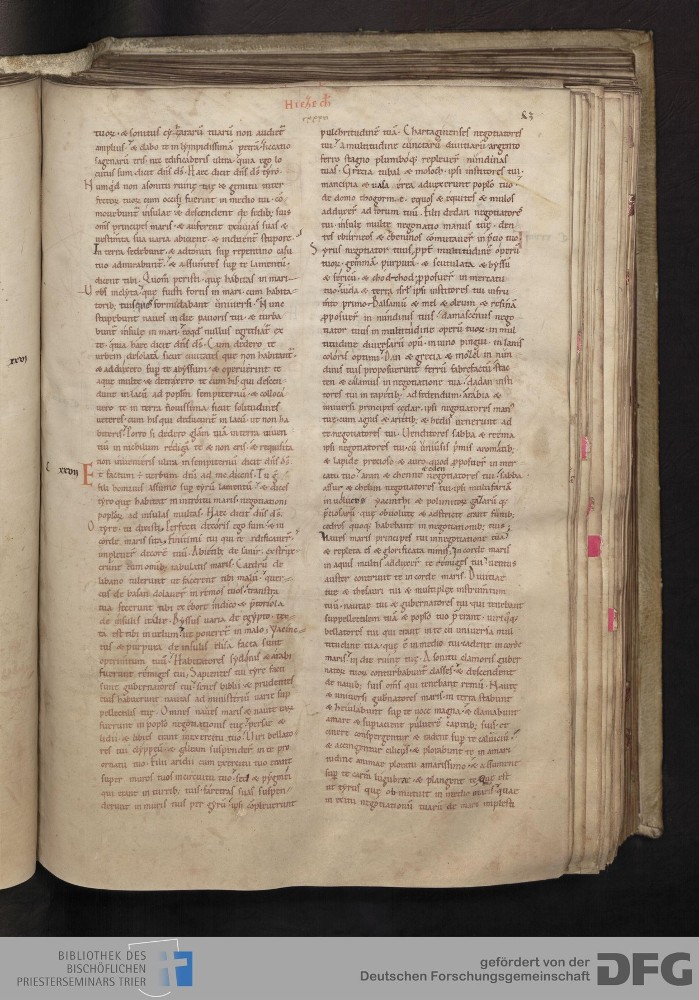 HIEZECHI
83
tuoꝝ. & sonitus cythararū tuarū non audiet᷑
amplius. & dabo te in lympidissimā petrā. siccatio
sagenarū eris. nec edificaberis ultra. quia ego lo
cutus sum dicit dn̄s d̄s. Hęc dicit dn̄s d̄s tyro.
Numqd non a sonitu ruinę tuę & gemitu inter
fectoꝝ tuoꝝ cum occisi fuerint in medio tui. cō
mouebunt᷑ insulae & descendent de sedib; suis
om̄s principes maris. & auferent exuuias suas &
uestimta sua varia abicient. & induent᷑ stupore.
In terra sedebunt. & adtoniti sup repentino casu
tuo admirabunt᷑. & assumtes sup te lamentū.
dicent tibi. Quom̄ peristi. quę habitas in mari.
Urbs inclyta. quę fuisti fortis in mari. cum habita
torib; tuis quos formidabant uniuersi. Nunc
stupebunt naues in die pauoris tui. & turba
bunt᷑ insulę in mari. eoqd nullus egrediat᷑ ex
te. quia haec dicit dn̄s d̄s. Cum dedero te
urbem desolatā sicut ciuitates que non habitant᷑.
& adduxero sup te abyssum. & operuerint te
aquę multę. & detraxero te cum his qui descen
dunt in lacū ad poplm̄ sempiternū. & colloca
uero te in terra nouissima sicut solitudines
ueteres. cum his qui deducunt᷑ in lacū ut non ha
biteris. Porro si dedero glām tuā in terra uiuen
tiū. in nihilum redigā te & non eris. & requisita
non inuenieris ultra in sempiternū dicit dn̄s d̄s.
xxvi
xxvii
Et factum ē uerbum dn̄i ad me dicens. Tu g̊
fili hominis assume sup tyrū lamentū. & dices
tyro que habitat in introitu maris. negotiationi
poploꝝ ad insulas multas. Haec dicit dn̄s d̄s.
O tyre. tu dixisti. Perfecti decoris ego sum. & in
corde maris sita. Finitimi tui qui te ędificauer̄.
impleuer̄ decorē tuū. Abietib; de sanir. exstrux
erunt
libano tulerunt ut facerent tibi malū. quer
cus de basan dolauer̄ in remos tuos. transtra
tua fecerunt tibi ex ebore indico. & p̄toriola
de insulis italię. Byssus varia de egypto. tex
ta est tibi in uelum ut poneret᷑ in malo. Yacinc
tus & purpura de insulis elisa facta sunt
operimtum tuū. Habitatores sydonis & aradii
fuerunt remiges tui. Sapientes tui tyre facti
sunt gubernatores tui. Senes biblii & prudentes
tui habuerunt nautas ad ministeriū varię sup
pellectilis tuę. Omnes naues maris & nautę earū
fuerunt in poplo negotiationis tuę. Persę &
lidii & libies erant in exercitu tuo. Uiri bellato
res tui clyppeū & galeam suspender̄ in te p̄ or
ornatu tuo. Filii aradii cum exercitu tuo erant
super muros tuos in circuitu tuo. sed & pygmei
qui erant in turrib; tuis. faretras suas suspen
derunt in muris tuis per gyrū. ipsi cōpleuerunt
pulchritudinē tuā. Chartaginenses negotiatores
tui. a multitudine cunctarū diuitiarū argento
ferro stagno plumboq; repleuer̄ nundinas
tuas. Grecia tubal & mosoch. ipsi institores tui.
mancipia & uasa ęrea aduexerunt poplo tuo.
de domo thogorma. equos & equites & mulos
adduxer̄ ad forum tuū. Filii dedan negotiatores
tui. insulę multę negotiatio manus tuę. den
tes eburneos & ebeninos commutauer̄ in p̄cio tuo.
Syrus negotiator tuus. pp̄t multitudinē operū
tuoꝝ. gemmā purpurā & scutulata & byssū
& sericū & chodchod p̄posuer̄ in mercatu
tuo. iuda & terra isrl̄ ipsi institores tui in fru
mto primo. Balsamū & mel & oleum & resinā
p̄posuer̄ in nundinis tuis. damascenus nego
tiator tuus in multitudine operū tuoꝝ. in mul
titudine diuersarū opū. in uino pingui. in lanis
coloris optimi. Dan & grecia & mosel in nun
dinis tuis proposuerunt ferrū fabrefactū. stac
ten & calamus in negotiatione tua. dadan insti
tores tui in tapetib; ad sedendum. arabia &
uniuersi principes cedar. ipsi negotiatores man̄
tuę. cum agnis & arietib; & hedis uenerunt ad
te negotiatores tui. Uenditores sabba & reema
ipsi negotiatores tui. cū uniuersis primis aromatib;
& lapide precioso & auro quod p̄posuer̄ in mer
& eden
catu tuo. aran & chenne negotiatores tui. sabba
assur & chelm negotiatores tui. ipsi multifariā
inuolucris yacincthi & polimitoꝝ gazarū q;
p̄ciosarū. quę obuolutę & adstrictę erant funib;
cedros quoq; habebant in negotiationib; tuis.
Naues maris principes tui in negotiatione tuā.
& repleta es & glorificata nimis. In corde maris
in aquis multis adduxer̄ te remiges tui. uentus
auster contriuit te in corde maris. Diuitiae
tuę & thesauri tui & multiplex instrumtum
tuū. nautae tui & gubernatores tui qui tenebant
suppellectilem tuā & poplo tuo p̄erant. uiri q;
bellatores tui qui erant in te cū uniuersa mul
titudine tua. quę ē in medio tui. cadent in corde
maris in die ruinę tuę. A sonitu clamoris guber
natoꝝ tuoꝝ conturbabunt᷑ classes. & descendent
de nauib; suis om̄s qui tenebant remū. Nautę
& uniuersi gubnatores maris in terra stabunt
& heiulabunt sup te uoce magna. & clamabunt
amare & supiacient puluerē capitib; suis. et
cinere conspergentur. & radent sup te caluiciū.
& accingentur ciliciis. & plorabunt te in amari
tudine animae ploratu amarissimo. & assument
sup te carm̄ lugubrae. & plangent te. Quę est
ut tyrus quę obmutuit in medio maris. quae
in exitu negotiationū tuarū de mari implesti
BIBLIOTHEK DES
BISCHÖFLICHEN
PRIESTERSEMINARS TRIER
gefördert von der
Deutschen Forschungsgemeinschaft
DFG